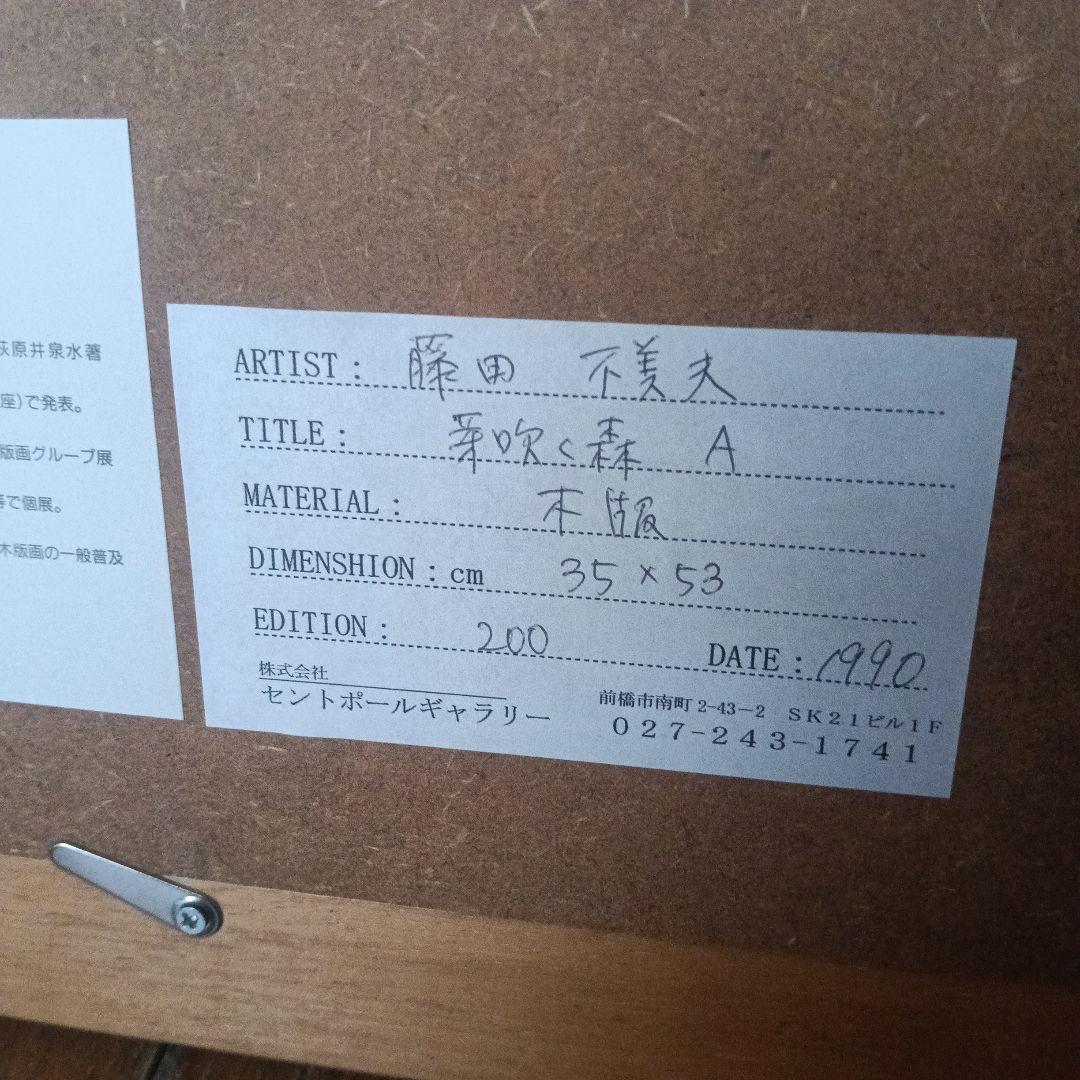 荻原井泉水著
座)で発表。
版画グループ展
等で個展。
木版画の一般普及
ARTIST : 藤田 不美夫
TITLE : 芽吹く森 A
MATERIAL : 木版
DIMENSHION : cm 35 × 53
EDITION : 200 DATE : 1990
株式会社
セントポールギャラリー
前橋市南町2-43-2 SK21ビル1F
027-243-1741